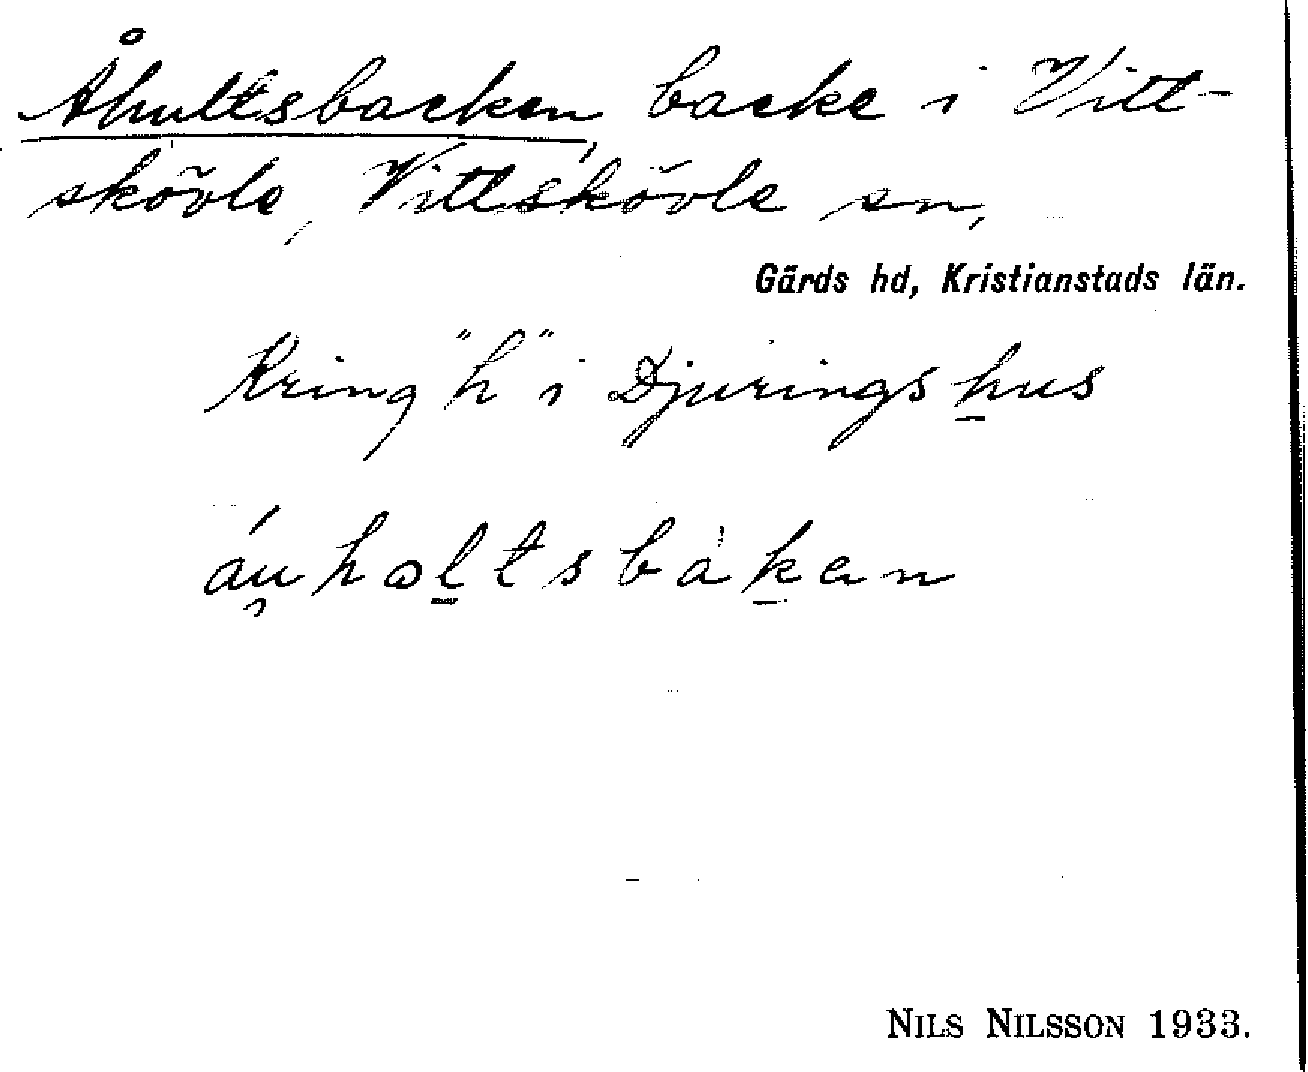 Åhultsbacken, backe i Vitt-
skövle, Vittskövle sn,
Gärds hd, Kristianstads län.
Kring "h" i Djuringshus
áu̡holtsbàkan
NILS NILSSON 1933.